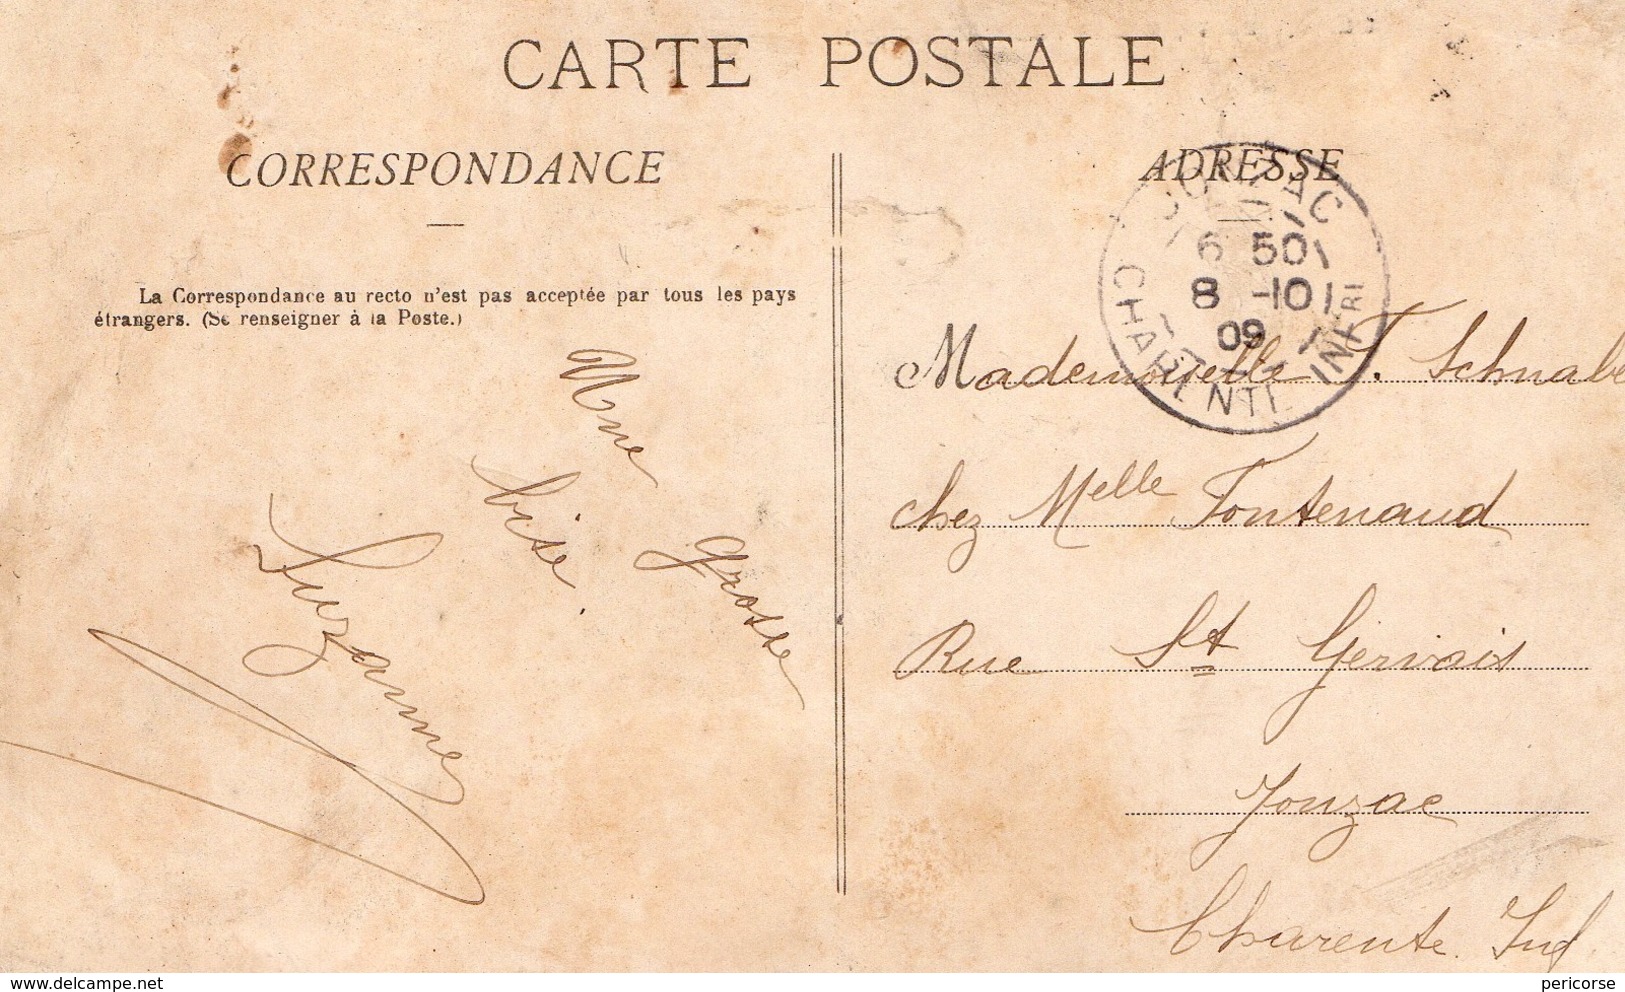 CARTE POSTALE
CORRESPONDANCE
La Correspondance au recto n'est pas acceptée par tous les pays
étrangers. (Se renseigner à la Poste.)
Une grosse
bise.
Suzanne
ADRESSE
JONZAC
6 50
8 -10
09
CHARENTE INFRE
Mademoiselle T. Schnabe
chez Melle Fontenaud
Rue St Gervais
Jonzac
Charente. Inf
delcampe.net
pericorse